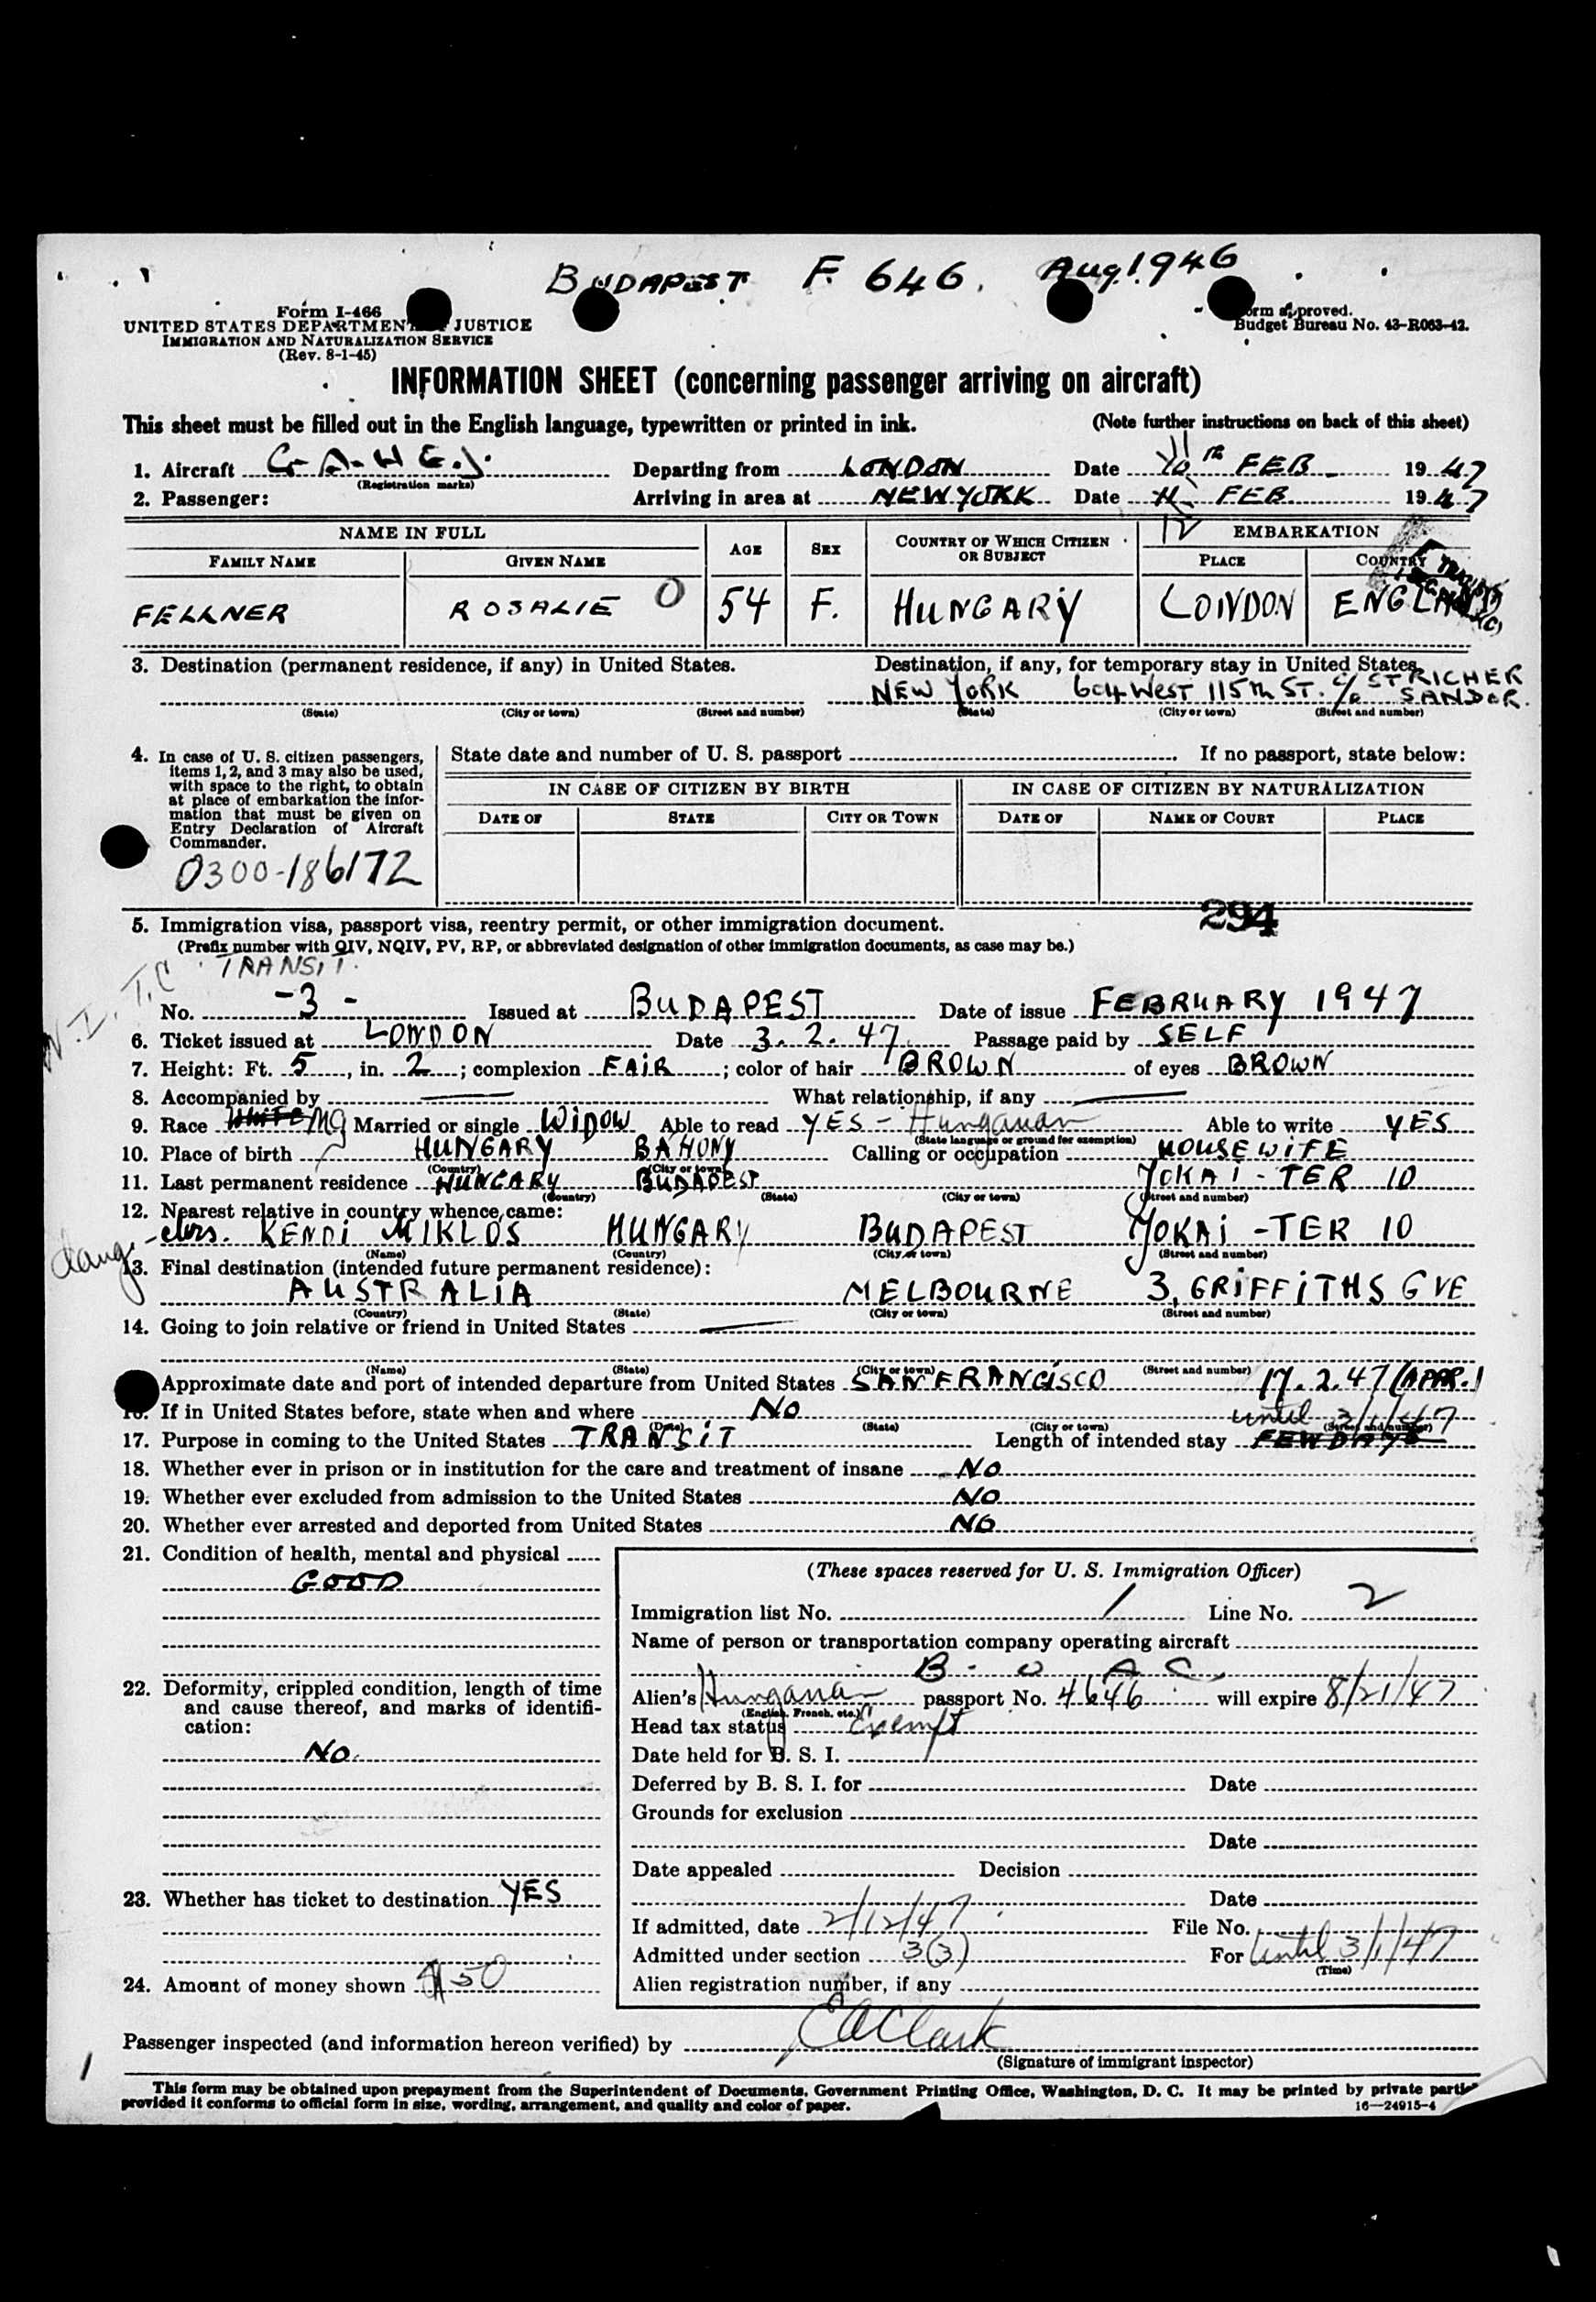 BUDAPEST F. 646. Aug. 1946
Form I-466
UNITED STATES DEPARTMENT JUSTICE
IMMIGRATION AND NATURALIZATION SERVICE
(Rev. 8-1-45)
orm approved.
Budget Bureau No. 43-R063-42.
INFORMATION SHEET (concerning passenger arriving on aircraft)
This sheet must be filled out in the English language, typewritten or printed in ink. (Note further instructions on back of this sheet)
1. Aircraft G-A-H E.J. Departing from LONDON Date 11th FEB 1947
(Registration marks)
2. Passenger: Arriving in area at NEW YORK Date 12 FEB. 1947
NAME IN FULL AGE SEX COUNTRY OF WHICH CITIZEN OR SUBJECT EMBARKATION
FAMILY NAME GIVEN NAME PLACE COUNTRY
FELLNER ROSALIE 0 54 F. HUNGARY LONDON ENGLAND
3. Destination (permanent residence, if any) in United States. Destination, if any, for temporary stay in United States
NEW YORK 604 WEST 115th ST. c/o STRICHER SANDOR.
(State) (City or town) (Street and number) (State) (City or town) (Street and number)
4. In case of U. S. citizen passengers, items 1, 2, and 3 may also be used, with space to the right, to obtain at place of embarkation the information that must be given on Entry Declaration of Aircraft Commander.
0300-186172
State date and number of U. S. passport If no passport, state below:
IN CASE OF CITIZEN BY BIRTH IN CASE OF CITIZEN BY NATURALIZATION
DATE OF STATE CITY OR TOWN DATE OF NAME OF COURT PLACE
294
5. Immigration visa, passport visa, reentry permit, or other immigration document.
(Prefix number with QIV, NQIV, PV, RP, or abbreviated designation of other immigration documents, as case may be.)
TRANSIT.
N.I.T.C
No. -3- Issued at BUDAPEST Date of issue FEBRUARY 1947
6. Ticket issued at LONDON Date 3. 2. 47. Passage paid by SELF
7. Height: Ft. 5, in. 2; complexion FAIR; color of hair BROWN of eyes BROWN
8. Accompanied by — What relationship, if any —
9. Race WHITE Mg Married or single WIDOW Able to read YES - Hungarian Able to write YES
(State language or ground for exemption)
10. Place of birth HUNGARY BAHONY Calling or occupation HOUSEWIFE
(Country) (City or town)
11. Last permanent residence HUNGARY BUDAPEST JOKAI-TER 10
(Country) (State) (City or town) (Street and number)
12. Nearest relative in country whence came:
daug. - Mrs. KENDI MIKLOS HUNGARY BUDAPEST JOKAI-TER 10
(Name) (Country) (City or town) (Street and number)
13. Final destination (intended future permanent residence):
AUSTRALIA MELBOURNE 3, GRIFFITHS GVE
(Country) (State) (City or town) (Street and number)
14. Going to join relative or friend in United States —
(Name) (State) (City or town) (Street and number)
Approximate date and port of intended departure from United States SAN FRANCISCO 17. 2. 47 (APPR.)
16. If in United States before, state when and where NO
(Date) (State) (City or town) (Street and number)
until 3/1/47
17. Purpose in coming to the United States TRANSIT Length of intended stay FEW DAYS
18. Whether ever in prison or in institution for the care and treatment of insane NO
19. Whether ever excluded from admission to the United States NO
20. Whether ever arrested and deported from United States NO
21. Condition of health, mental and physical
GOOD
22. Deformity, crippled condition, length of time and cause thereof, and marks of identification:
NO.
23. Whether has ticket to destination YES
24. Amount of money shown $50
(These spaces reserved for U. S. Immigration Officer)
Immigration list No. 1 Line No. 2
Name of person or transportation company operating aircraft
B. O A C.
Alien's Hungarian passport No. 4646 will expire 8/21/47
(English, French, etc.)
Head tax status Exempt
Date held for B. S. I.
Deferred by B. S. I. for Date
Grounds for exclusion
Date
Date appealed Decision
Date
If admitted, date 2/12/47. File No.
Admitted under section 3(3) For Until 3/1/47
(Time)
Alien registration number, if any
Passenger inspected (and information hereon verified) by EAClark
(Signature of immigrant inspector)
1
This form may be obtained upon prepayment from the Superintendent of Documents, Government Printing Office, Washington, D. C. It may be printed by private parti
provided it conforms to official form in size, wording, arrangement, and quality and color of paper. 16—24915-4